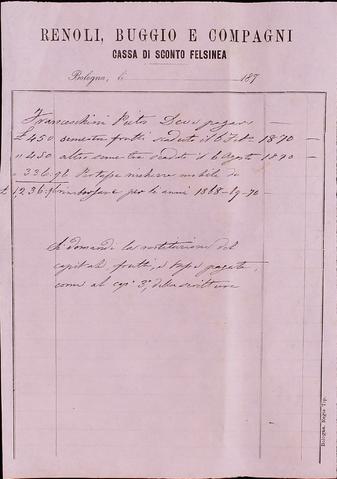 RENOLI, BUGGIO E COMPAGNI
CASSA DI SCONTO FELSINEA
Bologna, li 187
Franceschini Pietro Deve pagare
£ 450 semestre frutti scaduto il 6 Feb. 1870 —
" 450 altro semestre scaduto il 6 Agosto 1870 —
" 336.96 mobile di
£ 1,236.96 per le anni 1868-69-70 —
Si domanda la restituzione del
capitale frutti, e tasse pagate,
come al cap. 3°, della scrittura
Bologna, Regia Tip.